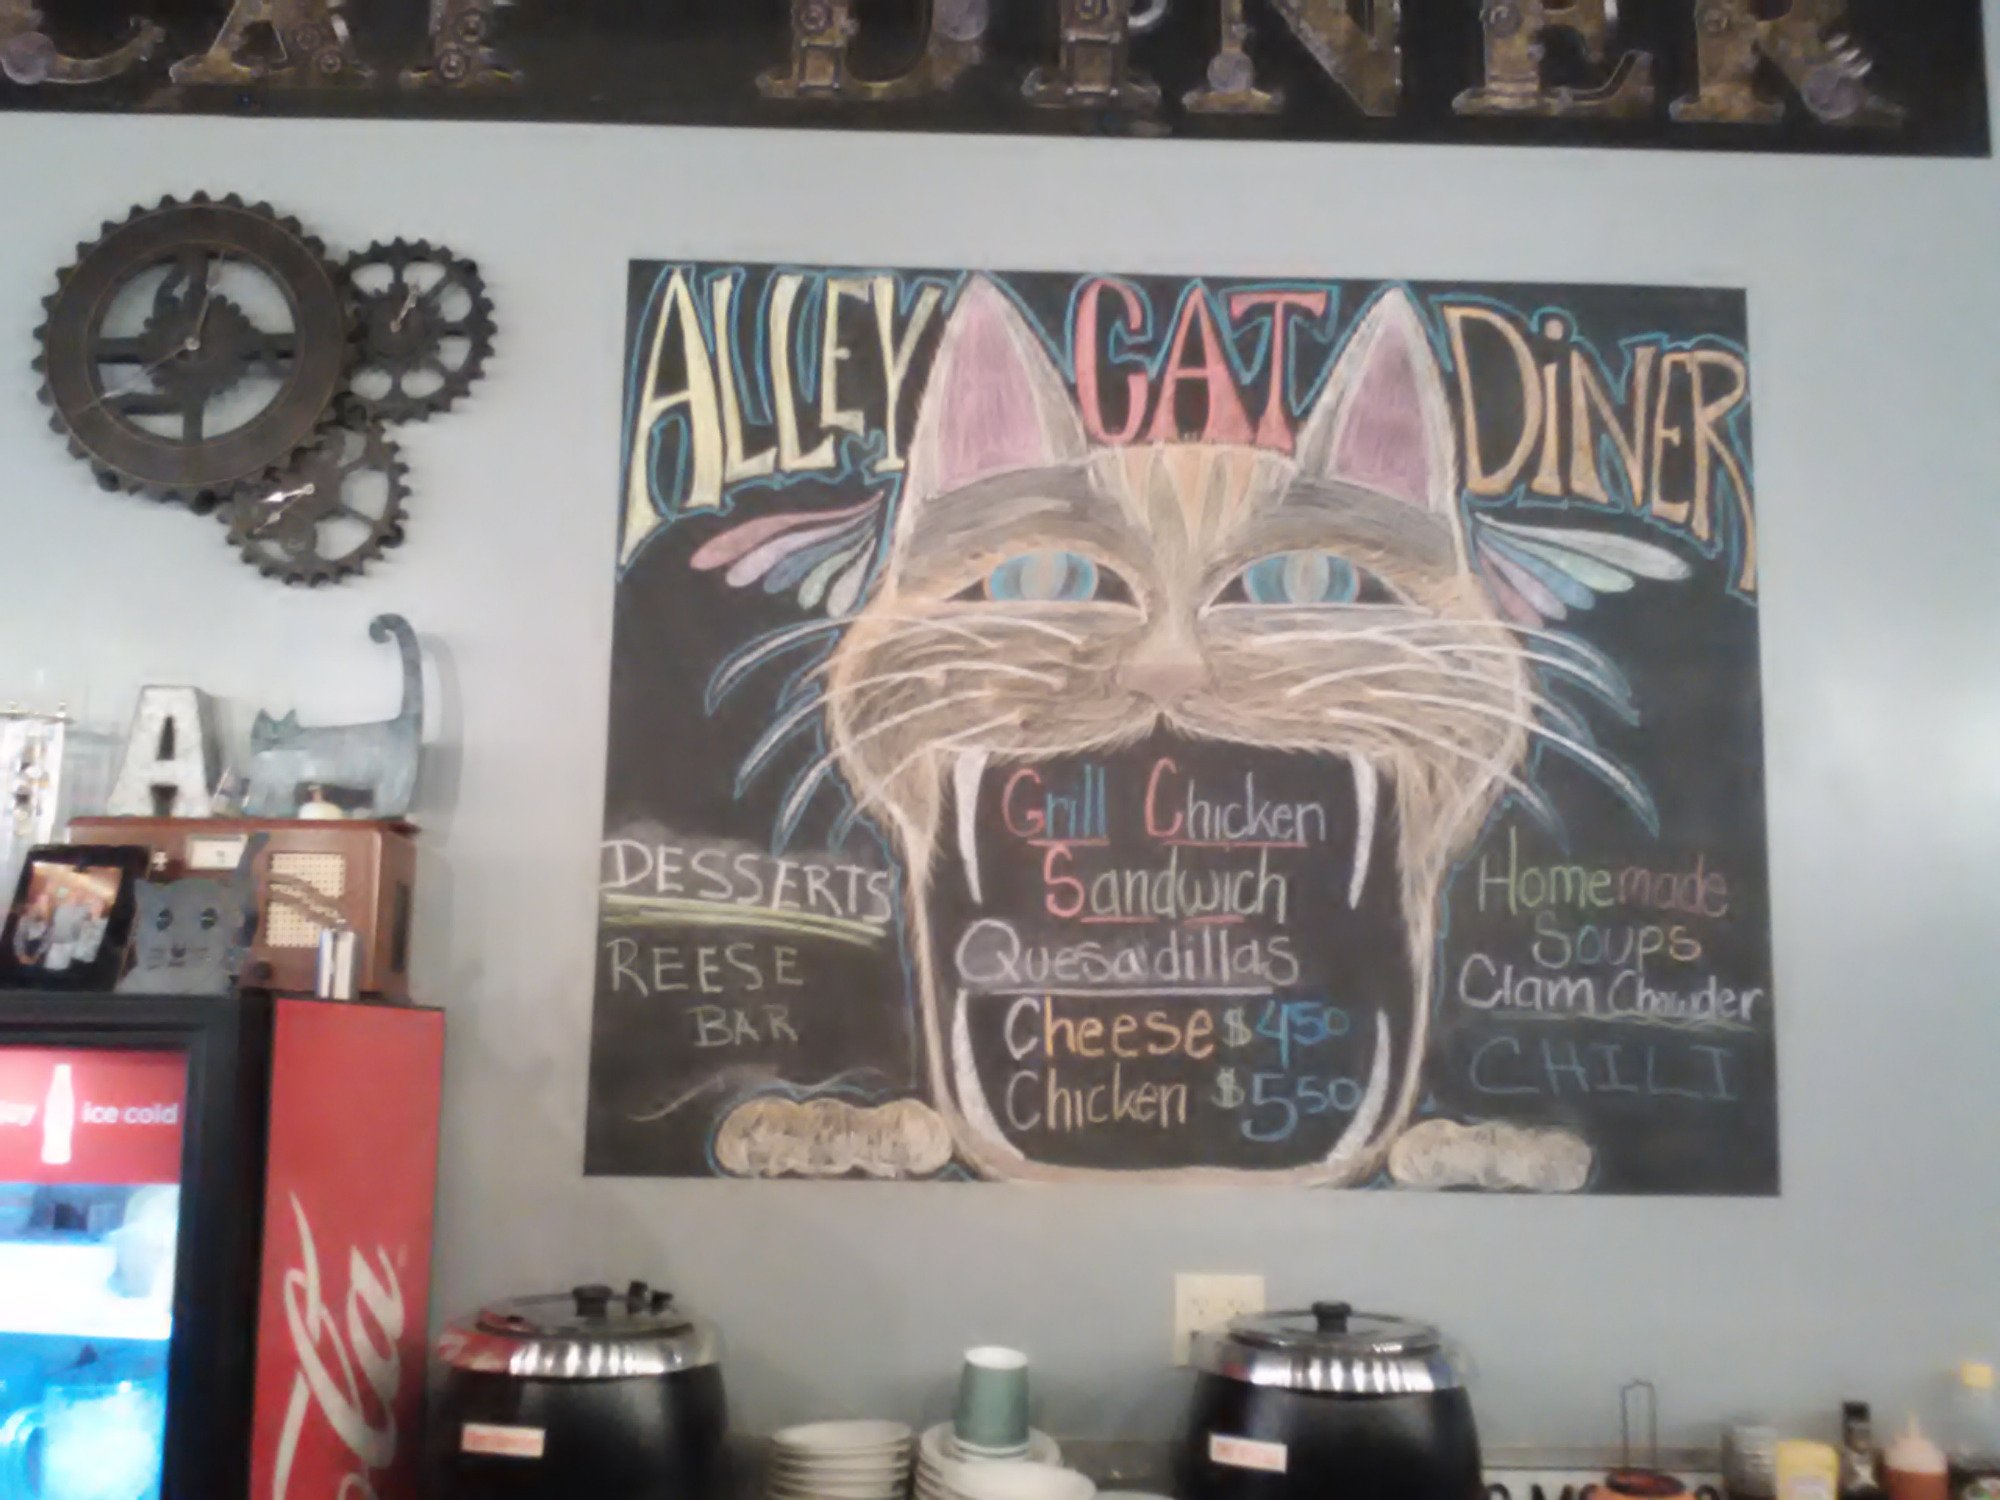 CAT DINER
ALLEY CAT DiNER
A
Grill Chicken
Sandwich
Quesadillas
Cheese $450
Chicken $550
DESSERTS
REESE
BAR
Homemade
Soups
Clam Chowder
CHILI
ice cold